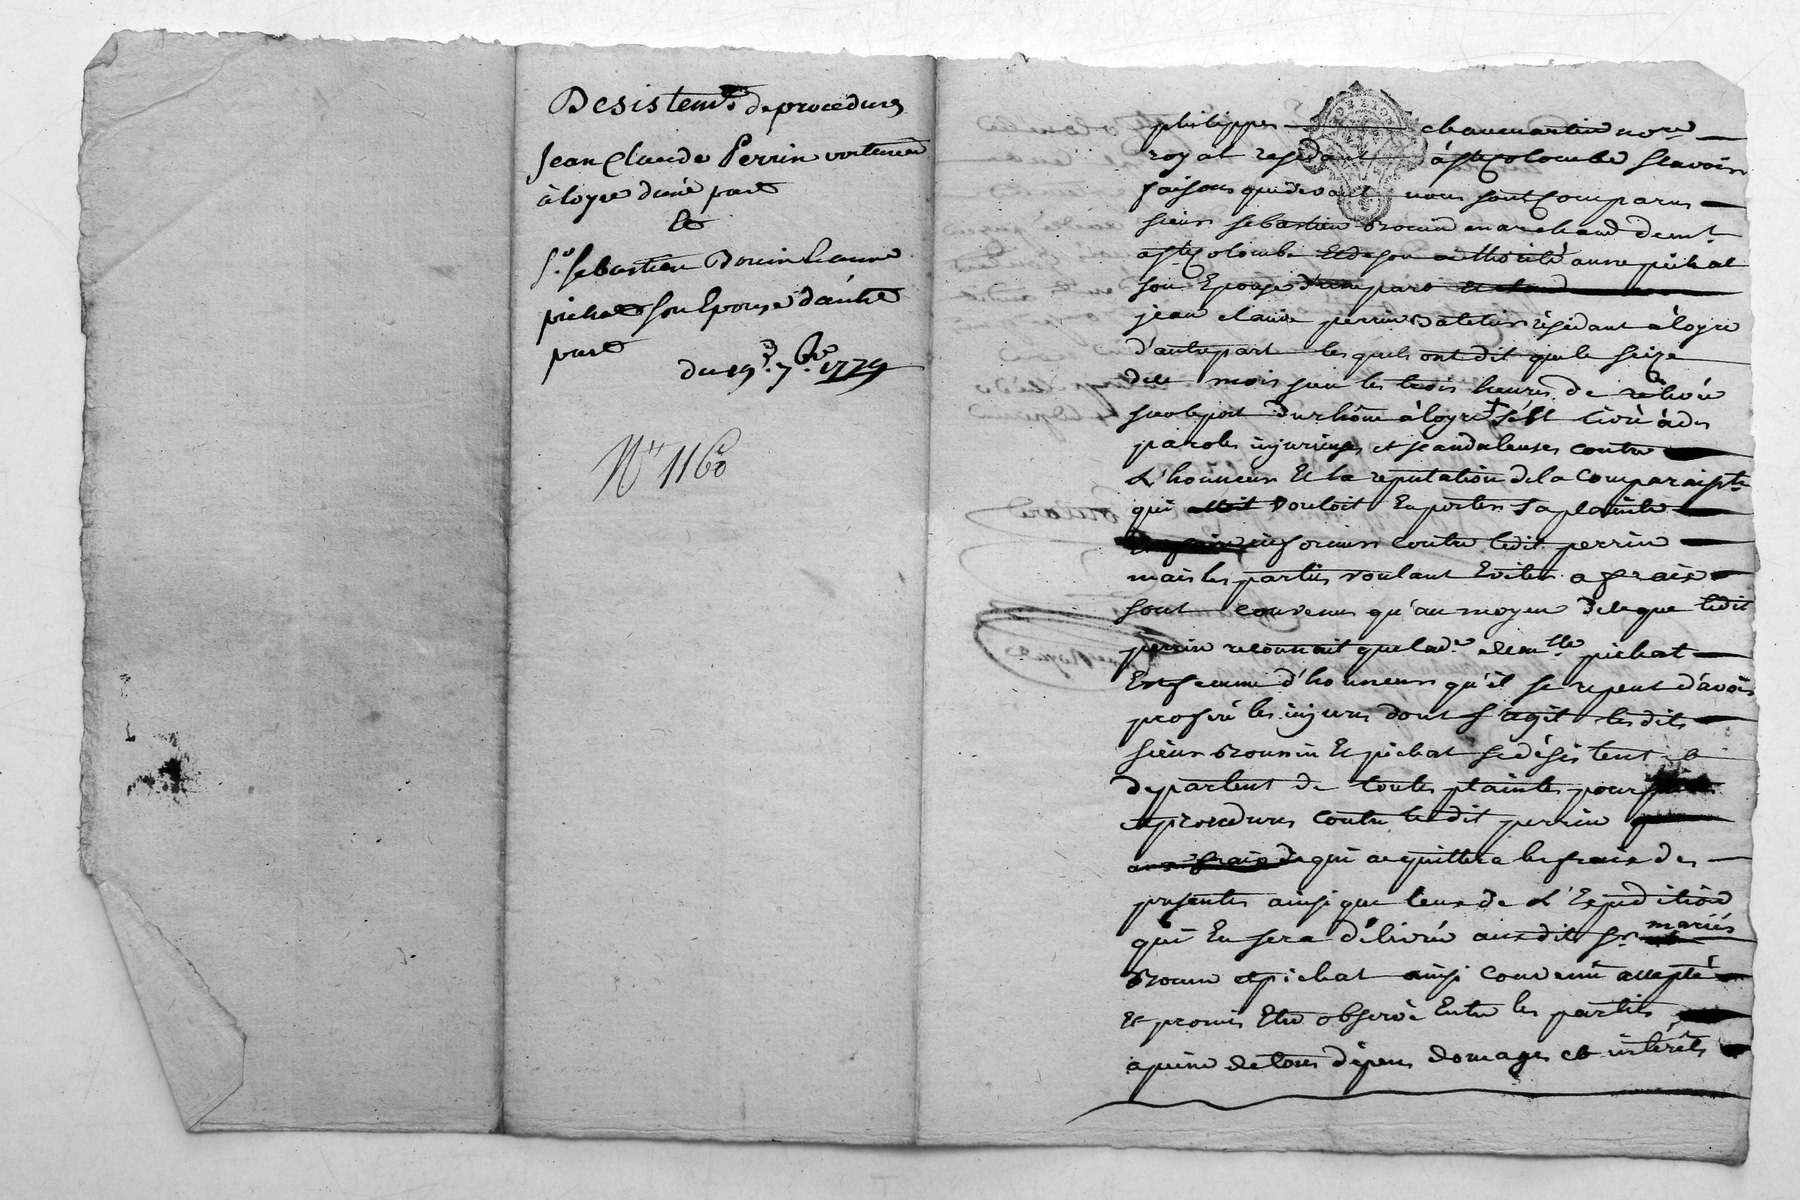 Desistem.t de procedures
Jean Claude Perrin voiturier
à loyre d'une part
Et
S.r Sebastien Brouin Leanne
pichat son Epouse d'autre
part
du 19.e 7.bre 1779
N.o 1160
philippes chaumartin no.re
royal residant à s.te Colombe sçavoir
faisons que devant nous sont comparus
sieur sebastien Brouin marchand dem.t
à s.te Colombe Et de son authorité anne pichat
son Epouse d'une part
jean claude perrin batelier résidant à loyre
d'autre part lesquels ont dit que le seize
du mois sur les trois heures de relevée
sur le port du rhône à loyre s'est livré à des
paroles injurieuses et scandaleuses contre
L'honneur Et la reputation de la comparaiss.te
qui vouloit En porter sa plainte
informer contre ledit perrin
mais les parties voulant Eviter a fraix
sont convenus qu'au moyen de ce que ledit
perrin reconnait que lad.e dem.lle pichat
Est femme d'honneur qu'il se repent d'avoir
proferé les injures dont s'agit lesdits
sieur Brouin Et pichat se désistent &
departent de toutes plaintes
et procedures contre ledit perrin
qui acquittera les fraix des
presentes ainsi que ceux de L'Expedition
qui En sera délivrée auxdits mariés
Brouin et pichat ainsi convenu accepté
Et promis Etre observé Entre les parties
à peine de tous dépens domages et intérêts